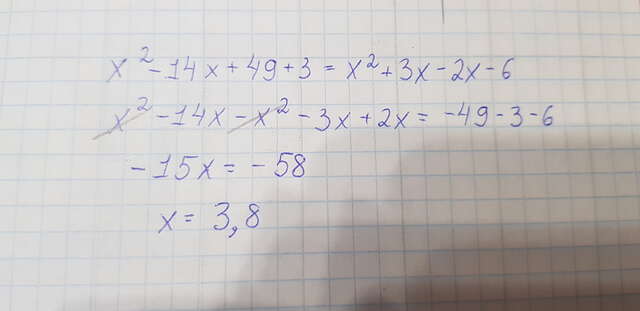 x²-14x+49+3=x²+3x-2x-6
x²-14x-x²-3x+2x=-49-3-6
-15x=-58
x=3,8